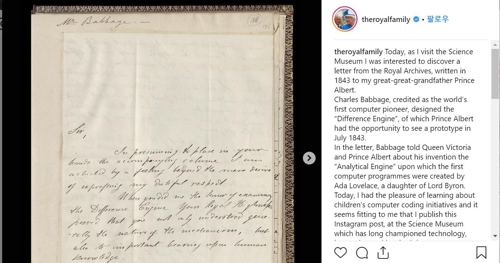 Mr Babbage. —
Sir,
In presuming to place in your
hands the accompanying volume I am
actuated by a feeling beyond the mere desire
of expressing my dutiful respect.
When yourself the honor of examining
the Difference Engine Your Royal Highness
proved that you not only understood gene-
rally the nature of the mechanism, but
also its important bearing upon human
knowledge.
theroyalfamily • 팔로우
theroyalfamily Today, as I visit the Science
Museum I was interested to discover a
letter from the Royal Archives, written in
1843 to my great-great-grandfather Prince
Albert.
Charles Babbage, credited as the world's
first computer pioneer, designed the
"Difference Engine", of which Prince Albert
had the opportunity to see a prototype in
July 1843.
In the letter, Babbage told Queen Victoria
and Prince Albert about his invention the
"Analytical Engine" upon which the first
computer programmes were created by
Ada Lovelace, a daughter of Lord Byron.
Today, I had the pleasure of learning about
children's computer coding initiatives and it
seems fitting to me that I publish this
Instagram post, at the Science Museum
which has long championed technology,